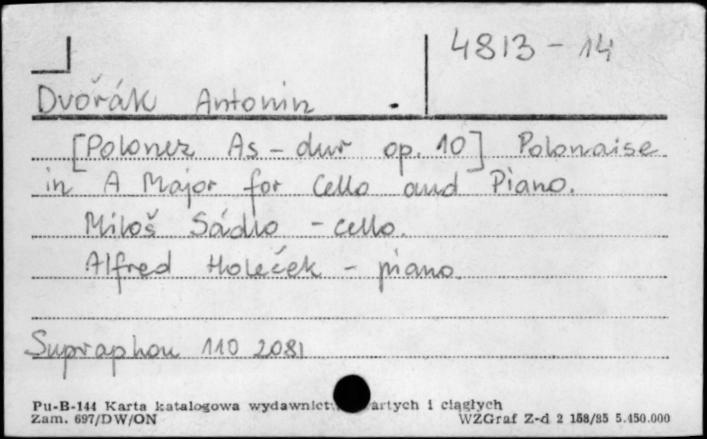 4813-14
Dvořák Antonin
[Polonez As-dur op. 10] Polonaise
in A Major for Cello and Piano.
Miloš Sádlo - cello.
Alfred Holeček - piano.
Supraphon 110 2081
Pu-B-144 Karta katalogowa i ciągłych
Zam. 697/DW/ON WZGraf Z-d 2 158/85 5.450.000